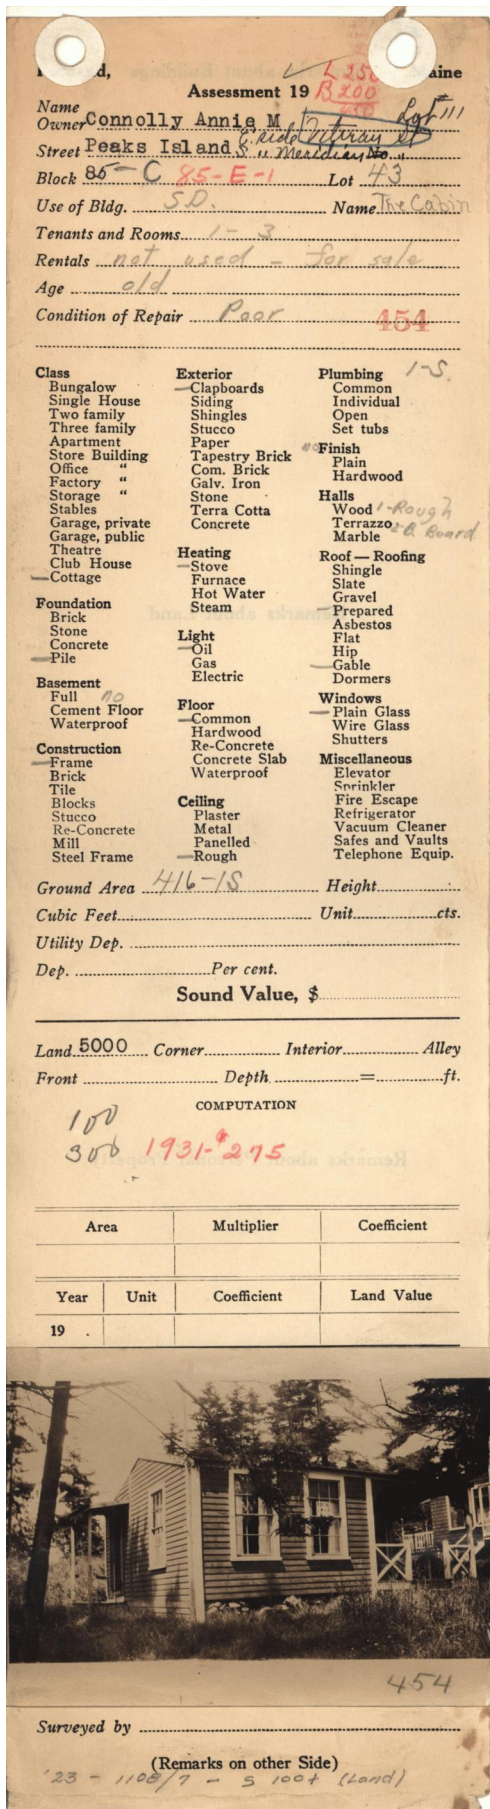 d, L 250 aine
Assessment 19 B 200
450
Name
Owner Connolly Annie M Lot 111
E side Veteran St
Street Peaks Island S " Meridian No. "
Block 85-C 85-E-1 Lot 43
Use of Bldg. S.D. Name The Cabin
Tenants and Rooms 1-3
Rentals not used - for sale
Age old
Condition of Repair Poor 454
Class
Bungalow
Single House
Two family
Three family
Apartment
Store Building
Office "
Factory "
Storage "
Stables
Garage, private
Garage, public
Theatre
Club House
Cottage
Foundation
Brick
Stone
Concrete
Pile
Basement
Full no
Cement Floor
Waterproof
Construction
Frame
Brick
Tile
Blocks
Stucco
Re-Concrete
Mill
Steel Frame
Exterior
Clapboards
Siding
Shingles
Stucco
Paper
Tapestry Brick
Com. Brick
Galv. Iron
Stone
Terra Cotta
Concrete
Heating
Stove
Furnace
Hot Water
Steam
Light
Oil
Gas
Electric
Floor
Common
Hardwood
Re-Concrete
Concrete Slab
Waterproof
Ceiling
Plaster
Metal
Panelled
Rough
Plumbing 1-S.
Common
Individual
Open
Set tubs
no Finish
Plain
Hardwood
Halls
Wood 1-Rough
Terrazzo 2-B. Board
Marble
Roof — Roofing
Shingle
Slate
Gravel
Prepared
Asbestos
Flat
Hip
Gable
Dormers
Windows
Plain Glass
Wire Glass
Shutters
Miscellaneous
Elevator
Sprinkler
Fire Escape
Refrigerator
Vacuum Cleaner
Safes and Vaults
Telephone Equip.
Ground Area 416-1S Height
Cubic Feet Unit cts.
Utility Dep.
Dep. Per cent.
Sound Value, $
Land 5000 Corner Interior Alley
Front Depth = ft.
COMPUTATION
100
300 1931-$275
Area Multiplier Coefficient
Year Unit Coefficient Land Value
19 .
454
Surveyed by
(Remarks on other Side)
'23 - 1108/7 - S 100+ (Land)